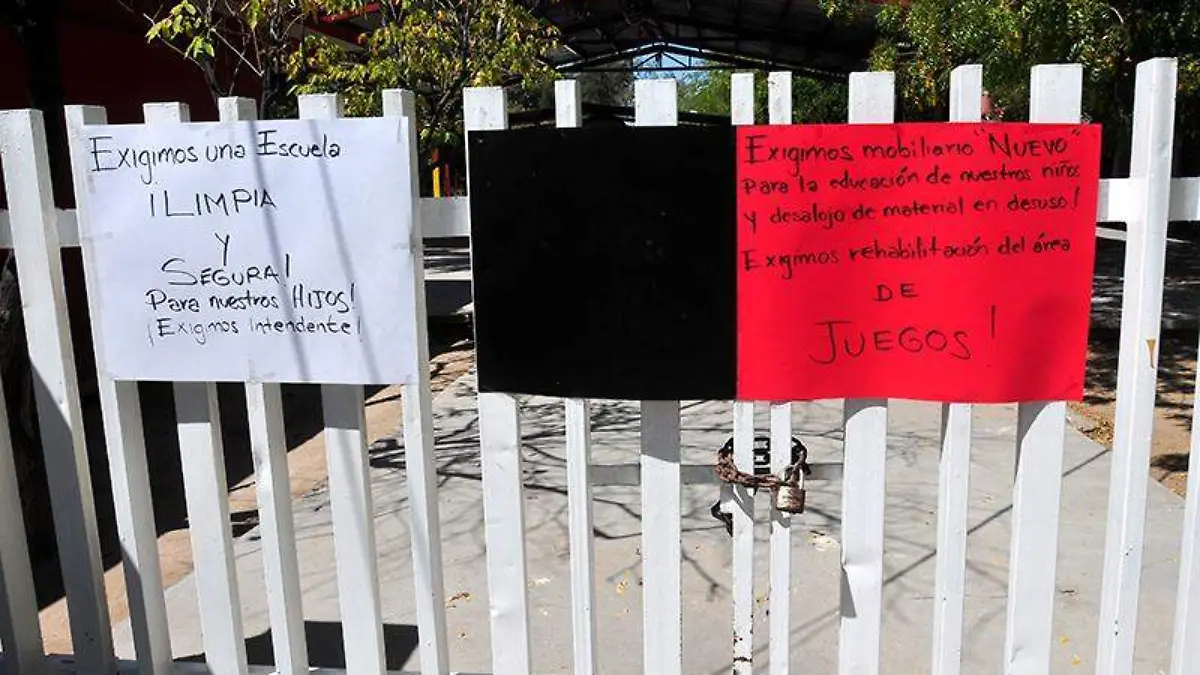 Exigimos una Escuela
¡LIMPIA
Y
SEGURA!
Para nuestros HIJOS!
¡Exigimos Intendente!
Exigimos mobiliario "NUEVO"
Para la educación de nuestros niños
y desalojo de material en desuso!
Exigimos rehabilitación del área
DE
JUEGOS!